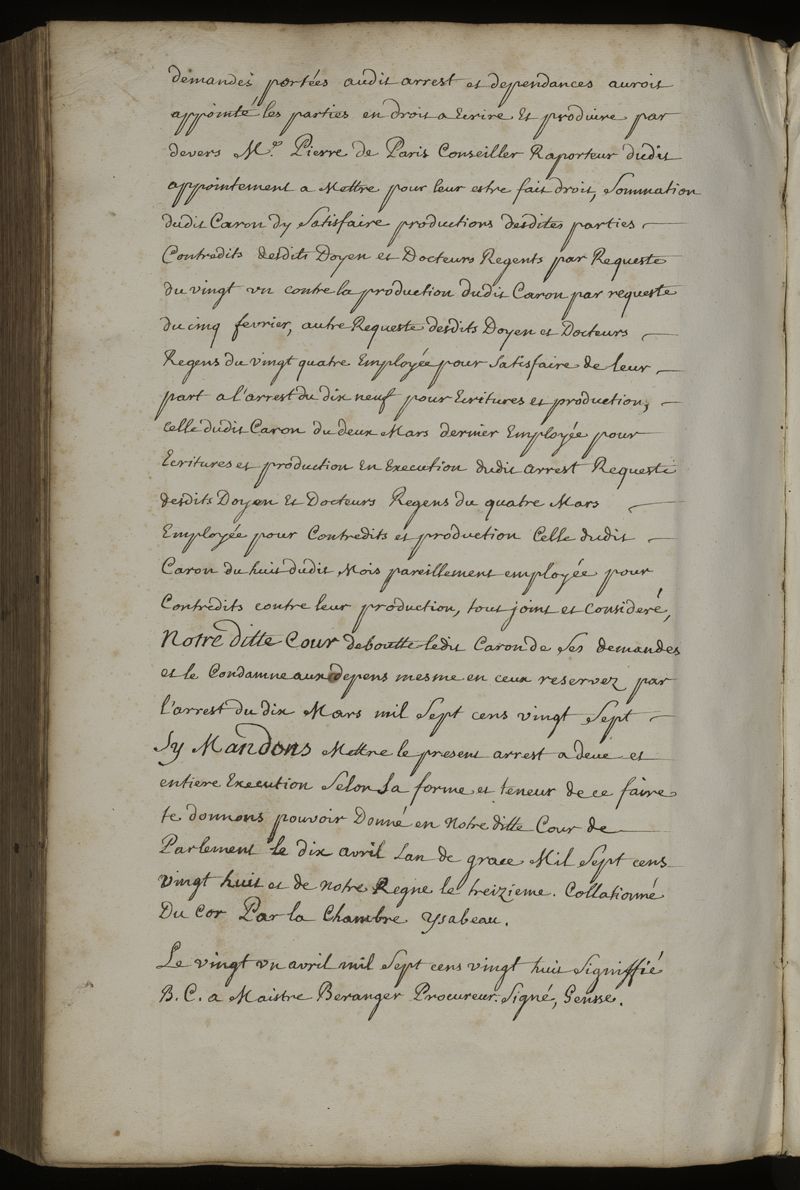 demandes portées audit arrest et dependances auroit
appointé les parties en droit a Ecrire Et produire par
devers Me. Pierre de Paris Conseiller Raporteur dudit
appointement a Mettre pour leur estre fait droit, Sommation
dudit Caron dy Satisfaire productions desdites parties
Contredits desdits Doyen et Docteurs Regents par Requeste
du vingt vn contre la production dudit Caron par requeste
du cinq fevrier, autre Requeste desdits Doyen et Docteurs
Regens du vingt quatre Employée pour Satisfaire de leur
part a l'arrest du dix neuf pour Ecritures et production,
Celle dudit Caron du deux Mars dernier Employée pour
Ecritures et production En Execution dudit arrest Requeste
desdits Doyen Et Docteurs Regens du quatre Mars
Employée pour Contredits et production Celle dudit
Caron du huit dudit Mois pareillement employée pour
Contredits contre leur production, tout joint et consideré,
Notre ditte Cour deboutte ledit Caron de Ses demandes
et le Condamne aux depens mesme en ceux reservez par
l'arrest du dix Mars mil Sept cens vingt Sept
Sy Mandons Mettre le present arrest a deue et
entiere Execution Selon Sa forme et teneur de ce faire
te donnons pouvoir Donné en Notre ditte Cour de
Parlement le dix avril Lan de grace Mil Sept cens
vingt huit et de notre Regne le treizieme. Collationné
Du Cor Par la Chambre Ysabeau.
Le vingt vn avril mil Sept cens vingt huit Signiffié
B. C. a Maistre Beranger Procureur. Signé,